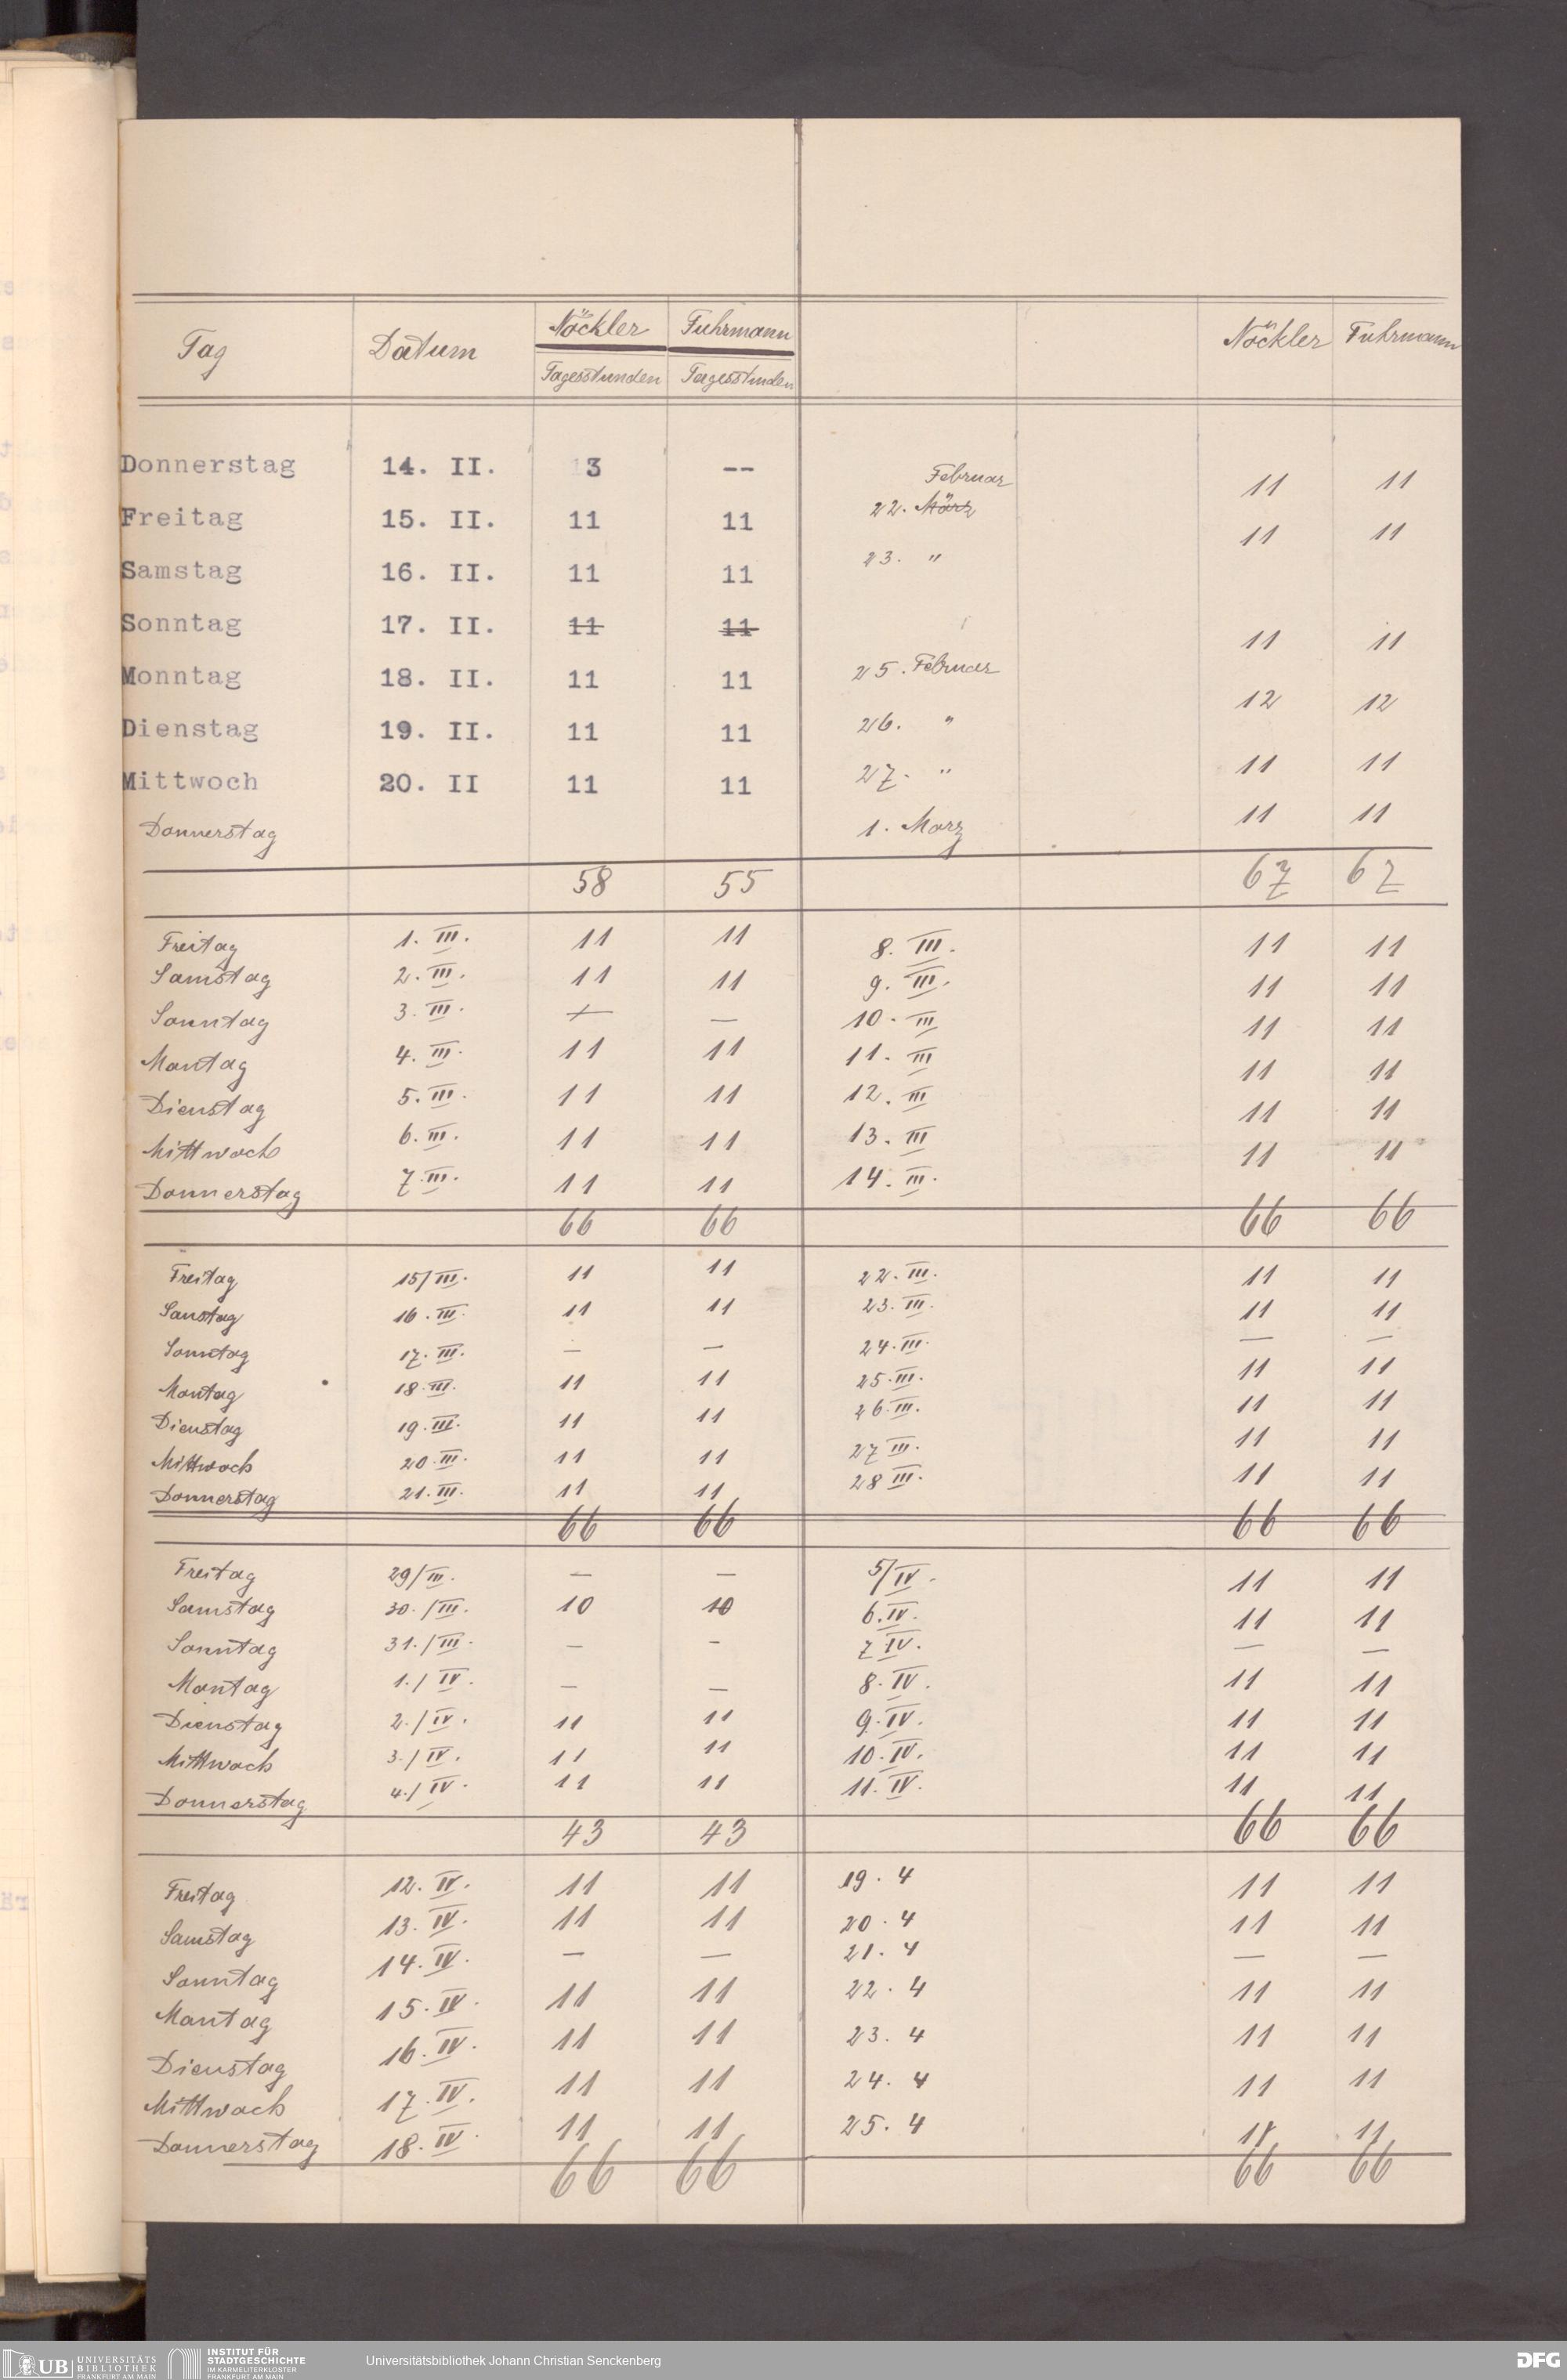 Tag Datum Nöckler Fuhrmann Nöckler Fuhrmann
Tagesstunden Tagesstunden
Donnerstag 14. II. 13 -- Februar 11 11
Freitag 15. II. 11 11 22. März 11 11
Samstag 16. II. 11 11 23. "
Sonntag 17. II. 11 11 11 11
Monntag 18. II. 11 11 25. Februar 12 12
Dienstag 19. II. 11 11 26. "
Mittwoch 20. II 11 11 27. " 11 11
Donnerstag 1. März 11 11
58 55 67 67
Freitag 1. III. 11 11 8. III. 11 11
Samstag 2. III. 11 11 9. III. 11 11
Sonntag 3. III. — — 10. III 11 11
Montag 4. III. 11 11 11. III 11 11
Dienstag 5. III. 11 11 12. III 11 11
Mittwoch 6. III. 11 11 13. III 11 11
Donnerstag 7. III. 11 11 14. III.
66 66 66 66
Freitag 15/III. 11 11 22. III. 11 11
Samstag 16. III. 11 11 23. III. 11 11
Sonntag 17. III. — — 24. III. — —
Montag 18. III. 11 11 25. III. 11 11
Dienstag 19. III. 11 11 26. III. 11 11
Mittwoch 20. III. 11 11 27 III. 11 11
Donnerstag 21. III. 11 11 28 III. 11 11
66 66 66 66
Freitag 29/III. — — 5/IV. 11 11
Samstag 30./III. 10 10 6. IV. 11 11
Sonntag 31./III. — - 7 IV. — —
Montag 1./IV. — — 8. IV. 11 11
Dienstag 2./IV. 11 11 9. IV. 11 11
Mittwoch 3./IV. 11 11 10. IV. 11 11
Donnerstag 4./IV. 11 11 11. IV. 11 11
43 43 66 66
Freitag 12. IV. 11 11 19. 4 11 11
Samstag 13. IV. 11 11 20. 4 11 11
Sonntag 14. IV. — — 21. 4 — —
Montag 15. IV. 11 11 22. 4 11 11
Dienstag 16. IV. 11 11 23. 4 11 11
Mittwoch 17. IV. 11 11 24. 4 11 11
Donnerstag 18. IV. 11 11 25. 4 11 11
66 66 66 66
UB UNIVERSITÄTS
BIBLIOTHEK
FRANKFURT AM MAIN
INSTITUT FÜR
STADTGESCHICHTE
IM KARMELITERKLOSTER
FRANKFURT AM MAIN
Universitätsbibliothek Johann Christian Senckenberg
DFG